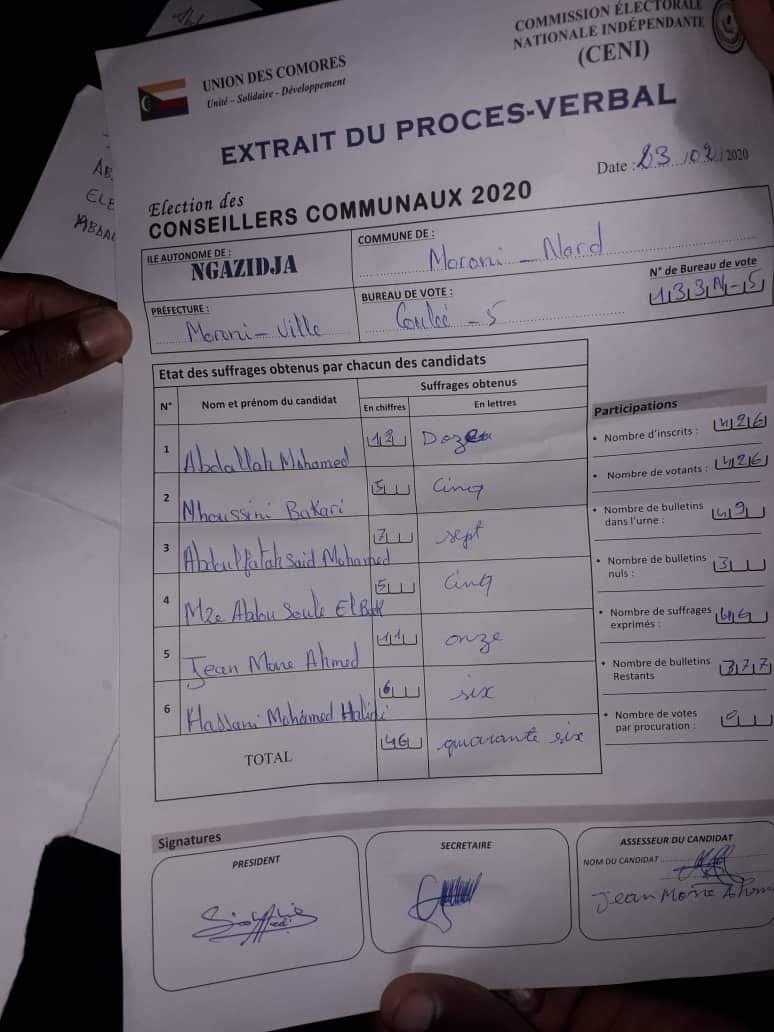 UNION DES COMORES
Unité – Solidaire - Développement
COMMISSION ÉLECTORALE
NATIONALE INDÉPENDANTE
(CENI)
EXTRAIT DU PROCES-VERBAL
Date : 23/02/2020
Election des
CONSEILLERS COMMUNAUX 2020
ILE AUTONOME DE :
NGAZIDJA
COMMUNE DE :
Moroni - Nord
PRÉFECTURE :
Moroni - Ville
BUREAU DE VOTE :
Coulée - 5
N° de Bureau de vote
133N-5
Etat des suffrages obtenus par chacun des candidats
N° Nom et prénom du candidat Suffrages obtenus
En chiffres En lettres
1 Abdallah Mohamed 12
2 Mhoussini Bakari 5 Cinq
3 Abdoulfatah Said Mohamed 7 sept
4 Mze Abdou Soule 5 Cinq
5 Jean Mone Ahmed 11 onze
6 Hassani Mohamed Halidi 6 six
TOTAL 46 quarante six
Participations
• Nombre d'inscrits : 426
• Nombre de votants : 426
• Nombre de bulletins
dans l'urne : 49
• Nombre de bulletins
nuls : 3
• Nombre de suffrages
exprimés :
• Nombre de bulletins
Restants 377
• Nombre de votes
par procuration : 0
Signatures
PRESIDENT
SECRETAIRE
ASSESSEUR DU CANDIDAT
NOM DU CANDIDAT
Jean Mone